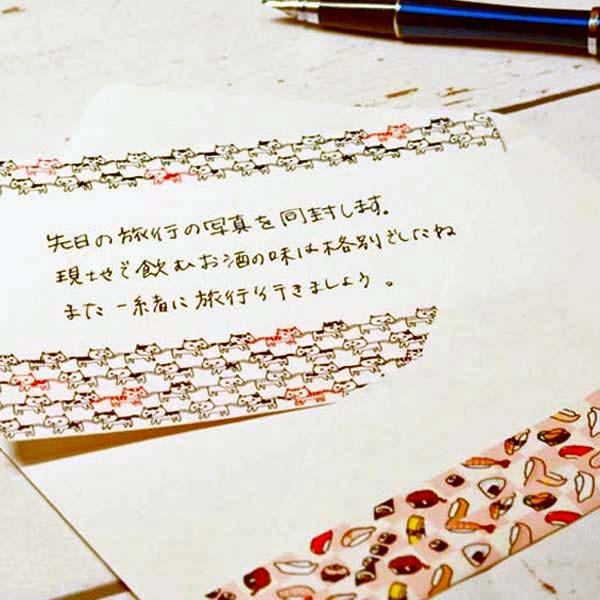 先日の旅行の写真を同封します。
現地で飲むお酒の味は格別でしたね
また一緒に旅行行きましょう。